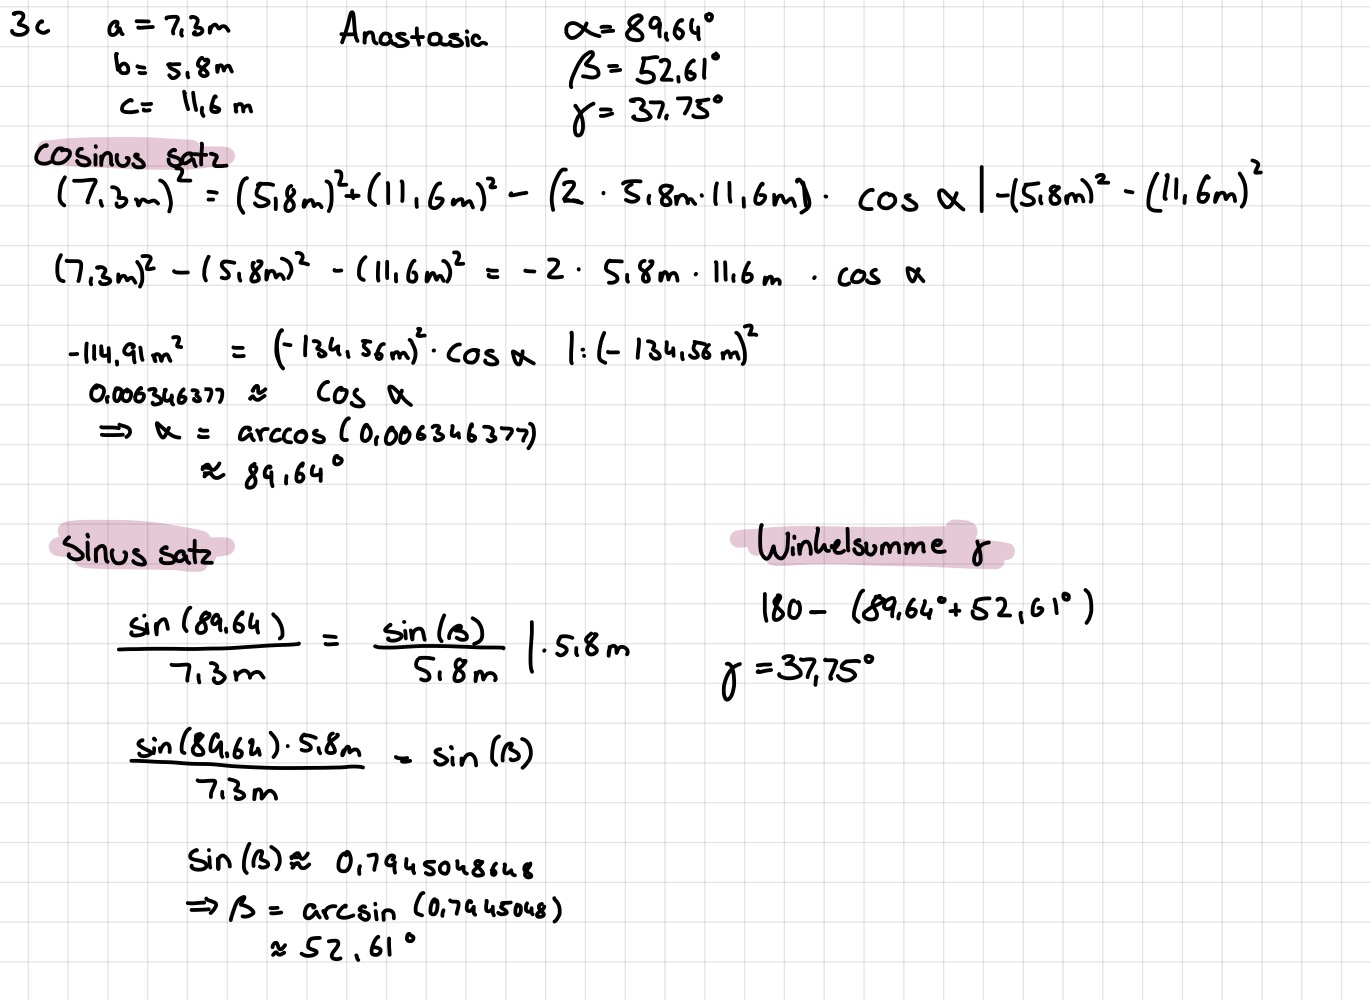 3c a = 7,3m Anastasia α = 89,64°
b = 5,8m β = 52,61°
c = 11,6 m γ = 37,75°
Cosinus satz
(7,3m)² = (5,8m)² + (11,6m)² − (2 · 5,8m · 11,6m) · cos α | −(5,8m)² − (11,6m)²
(7,3m)² − (5,8m)² − (11,6m)² = −2 · 5,8m · 11,6m · cos α
−114,91m² = (−134,56m)² · cos α |: (−134,56m)²
0,006346377 ≈ cos α
⇒ α = arccos (0,006346377)
≈ 89,64°
Sinus satz
sin (89,64) / 7,3m = sin (β) / 5,8m | · 5,8m
sin (89,64) · 5,8m / 7,3m = sin (β)
sin (β) ≈ 0,7945048648
⇒ β = arcsin (0,7945048)
≈ 52,61°
Winkelsumme γ
180 − (89,64° + 52,61°)
γ = 37,75°